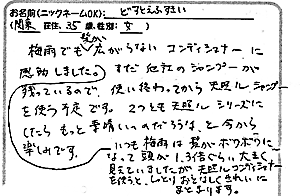 お名前(ニックネームOK): どすとえふすきい
(関東 在住、35 歳、性別: 女 )
梅雨でも髪が広がらない コンディショナー に
感動しました。 まだ 他社の シャンプーが
残っているので、使い終わってから 天照 シャンプー
を使う予定です。 2つとも 天照 シリーズに
したら もっと 素晴しいのだろうな、と 今から
楽しみです。
いつも 梅雨は 髪が ボワボワに
なって 頭が 1.3倍ぐらい 大きく
見えていましたが 天照コンディショナー
を使うと、しっとり おとなしく きれいに
まとまります。